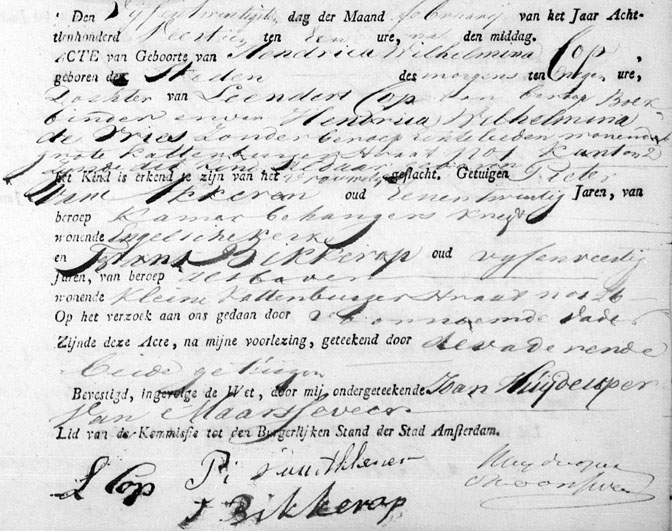 Den Vyfentwintigste dag der Maand february van het Jaar Acht-
tienhonderd Veertien ten ure, na den middag.
ACTE van Geboorte van Hendrica Wilhelmina Cop,
geboren den Heden des morgens ten ure,
Dochter van Leendert Cop van beroep Boek
binder en van Hendrica Wilhelmina
de Vries zonder beroep wonende
groote Kattenburger straat No Kanton 2
Het Kind is erkend te zijn van het Vrouwelijk geslacht. Getuigen Pieter
van oud eenentwintig Jaren, van
beroep Kamer behangers knegt
wonende Engelsche Kerk
en Frans Bikkerap oud vyfenveertig
Jaren, van beroep
wonende Kleine Kattenburger straat no 26
Op het verzoek aan ons gedaan door den Vader
Zijnde deze Acte, na mijne voorlezing, geteekend door de vader ende
beide getuigen
Bevestigd, ingevolge de Wet, door mij ondergeteekende Joan Huydecoper
van Maarsseveen
Lid van de Kommissie tot den Burgerlijken Stand der Stad Amsterdam.
L Cop
Bikkerap